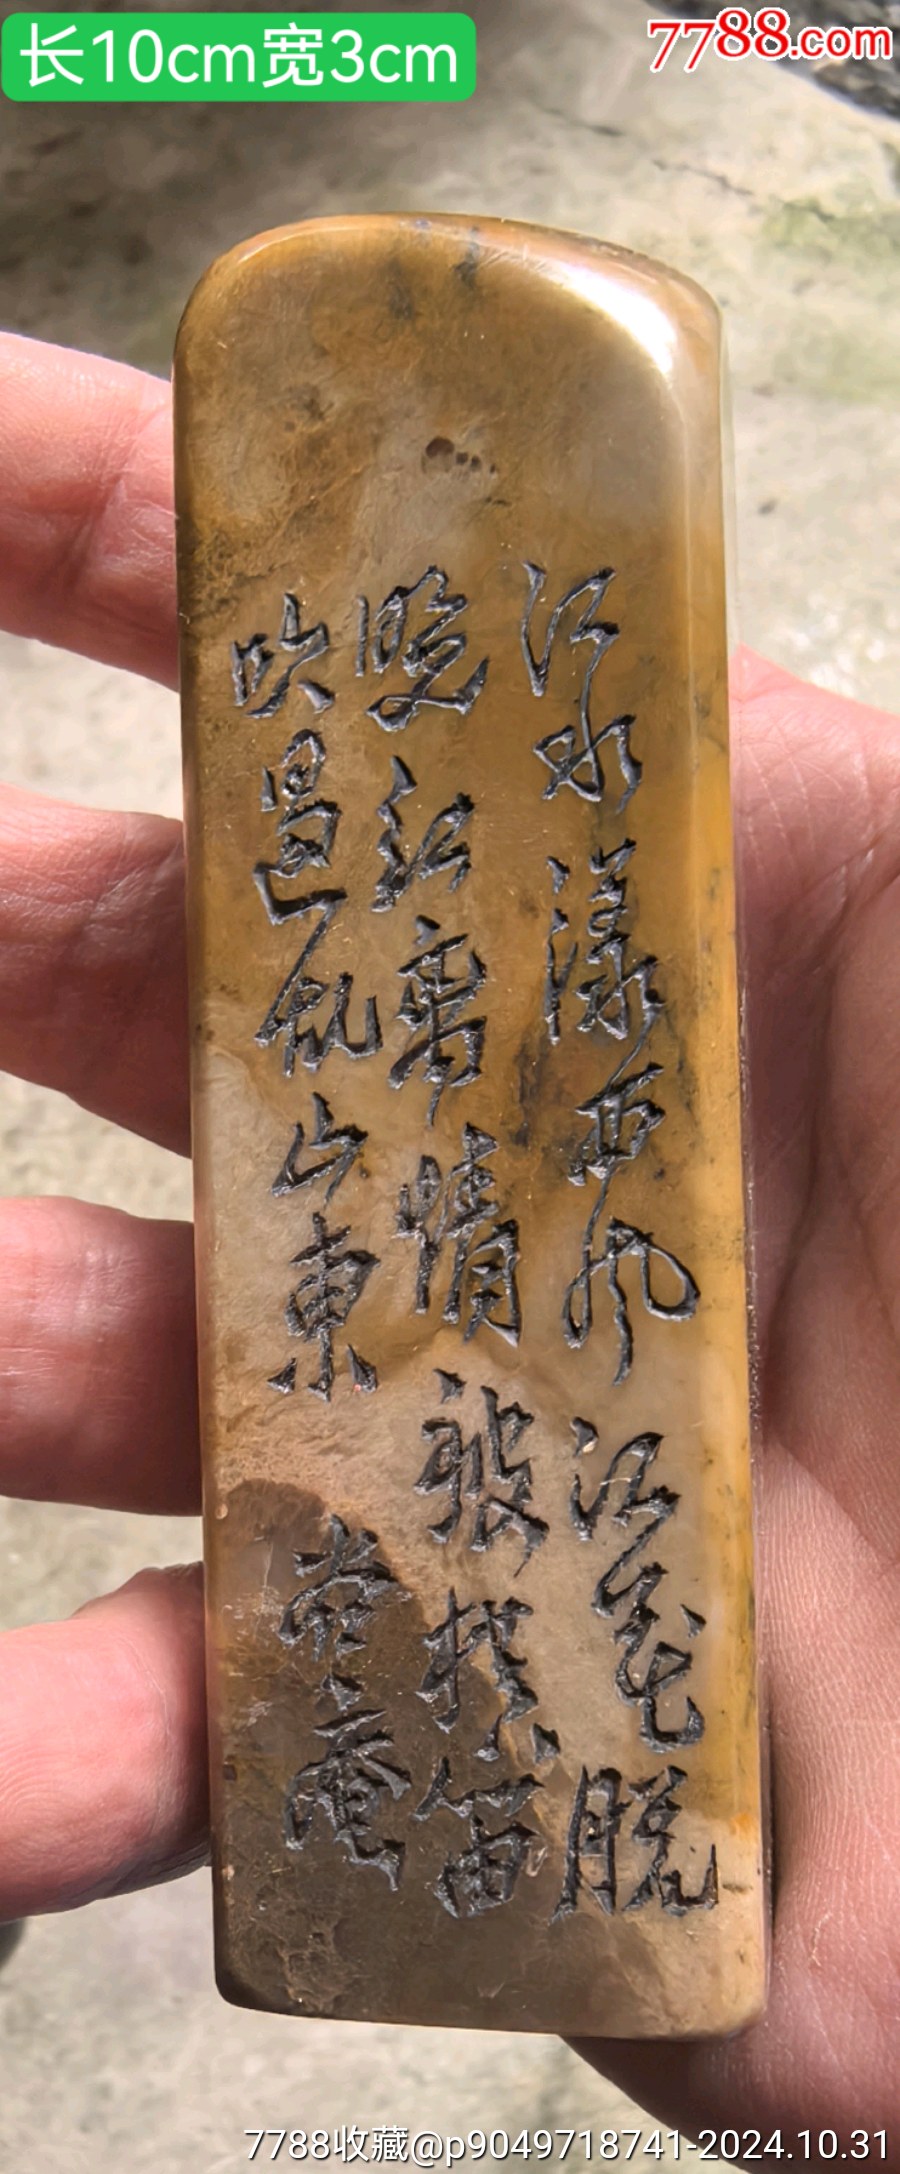 长10cm宽3cm
7788.com
江水漾西风江花脱
晚红离情被横笛
吹過乱山東
庵
7788收藏@p9049718741-2024.10.31